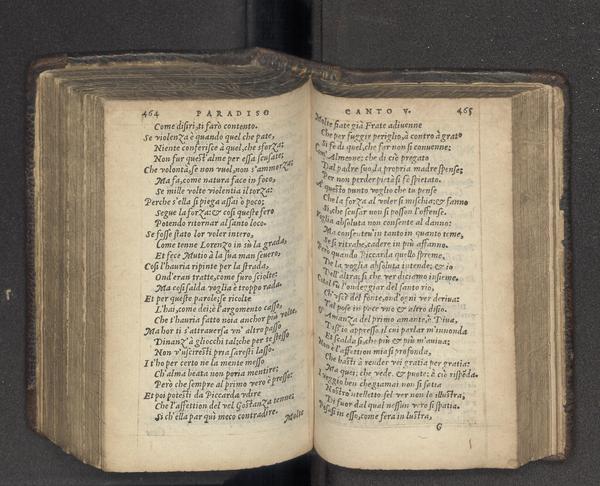 464 PARADISO
Come disiri, ti farò contento.
Se violenza è quando quel che pate,
Niente conferisce à quel, che sforza;
Non fur quest'alme per essa scusate;
Che volontà, se non vuol, non s'ammorza;
Ma fa, come natura face in foco,
Se mille volte violentia il torza:
Perche s'ella si piega assai ò poco;
Segue la forza: & cosi queste fero
Potendo ritornar al santo loco.
Se fosse stato lor voler intero,
Come tenne Lorenzo in sù la grada,
Et fece Mutio à la sua man severo,
Cosi l'hauria ripinte per la strada,
Ond'eran tratte, come furo sciolte:
Ma cosi salda voglia è troppo rada.
Et per queste parole; se ricolte
L'hai, come dei; è l'argomento casso,
Che t'hauria fatto noia anchor piu volte.
Ma hor ti s'attrauersa vn'altro passo
Dinanz'à gliocchi tal; che per te stesso
Non v'usciresti pria saresti lasso.
I t'ho per certo ne la mente messo
Ch'alma beata non poria mentire;
Però che sempre al primo vero è presso:
Et poi potesti da Piccarda vdire
Che l'affettion del vel Gostanza tenne;
Si ch'ella par quì meco contradire.
Molte
CANTO V. 465
Molte fiate già Frate adiuenne
Che per fuggir periglio, à contro à grato
Si fe di quel, che far non si conuenne:
Com'Almeone; che di ciò pregato
Dal padre suo, la propria madre spense;
Per non perder pietà si fe spietato.
A questo punto voglio che tu pense
Che la forza al voler si mischia; & fanno
Si, che scusar non si posson l'offense.
Voglia absoluta non consente al danno:
Ma consenteu'in tanto in quanto teme,
Se si ritrahe, cadere in più affanno.
Però quando Piccarda quello spreme,
De la voglia absoluta intende; & io
Dell'altra; si che ver diciamo insieme.
Cotal fu l'ondeggiar del santo rio,
Ch'uscì del fonte, ond'ogni ver deriua:
Tal pose in pace vno & altro disio.
O Amanza del primo amante, ò Diua,
Diss'io appresso, il cui parlar m'innonda
Et scalda si, che più & più m'auiua;
Non è l'affettion mia si profonda,
Che basti à render voi gratia per gratia:
Ma quei; che vede & puote; à ciò rispõda.
I veggio ben che giamai non si satia
Nostro'ntelletto, se'l ver non lo illustra;
Di fuor dal qual nessun vero si spatia.
Posasi in esso, come fera in lustra,
G